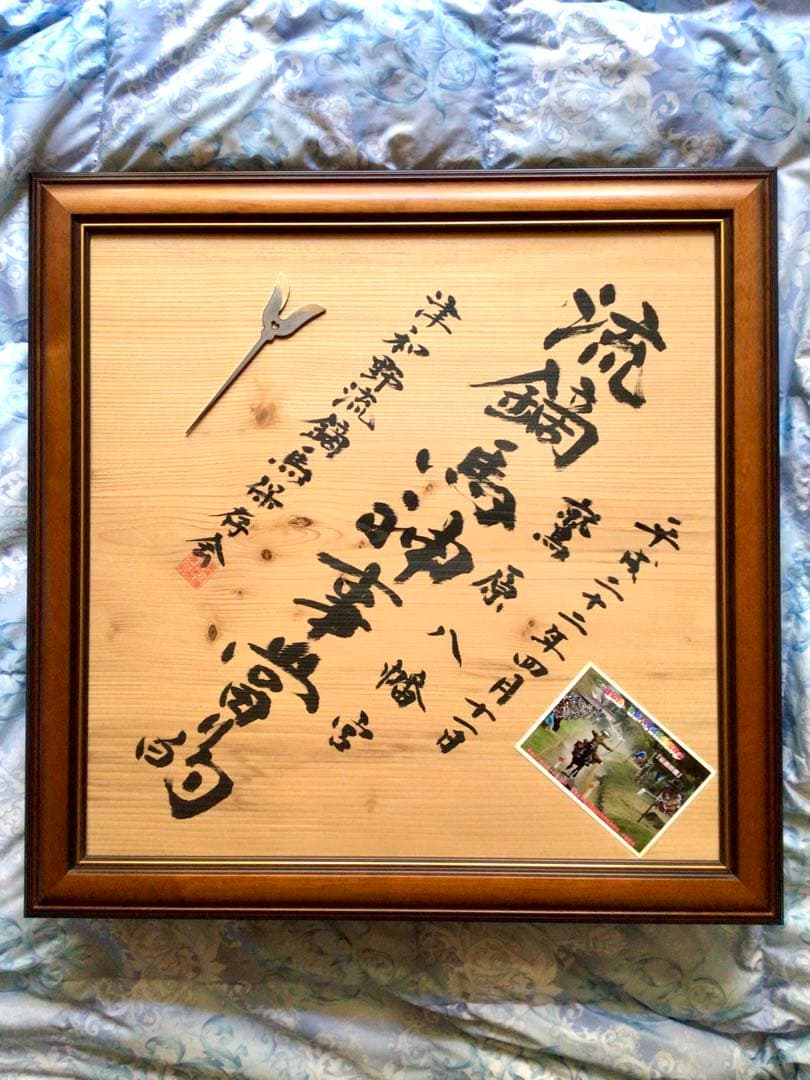 平成二十二年四月十一日
鷲原八幡宮
流鏑馬神事当的
津和野流鏑馬保存会